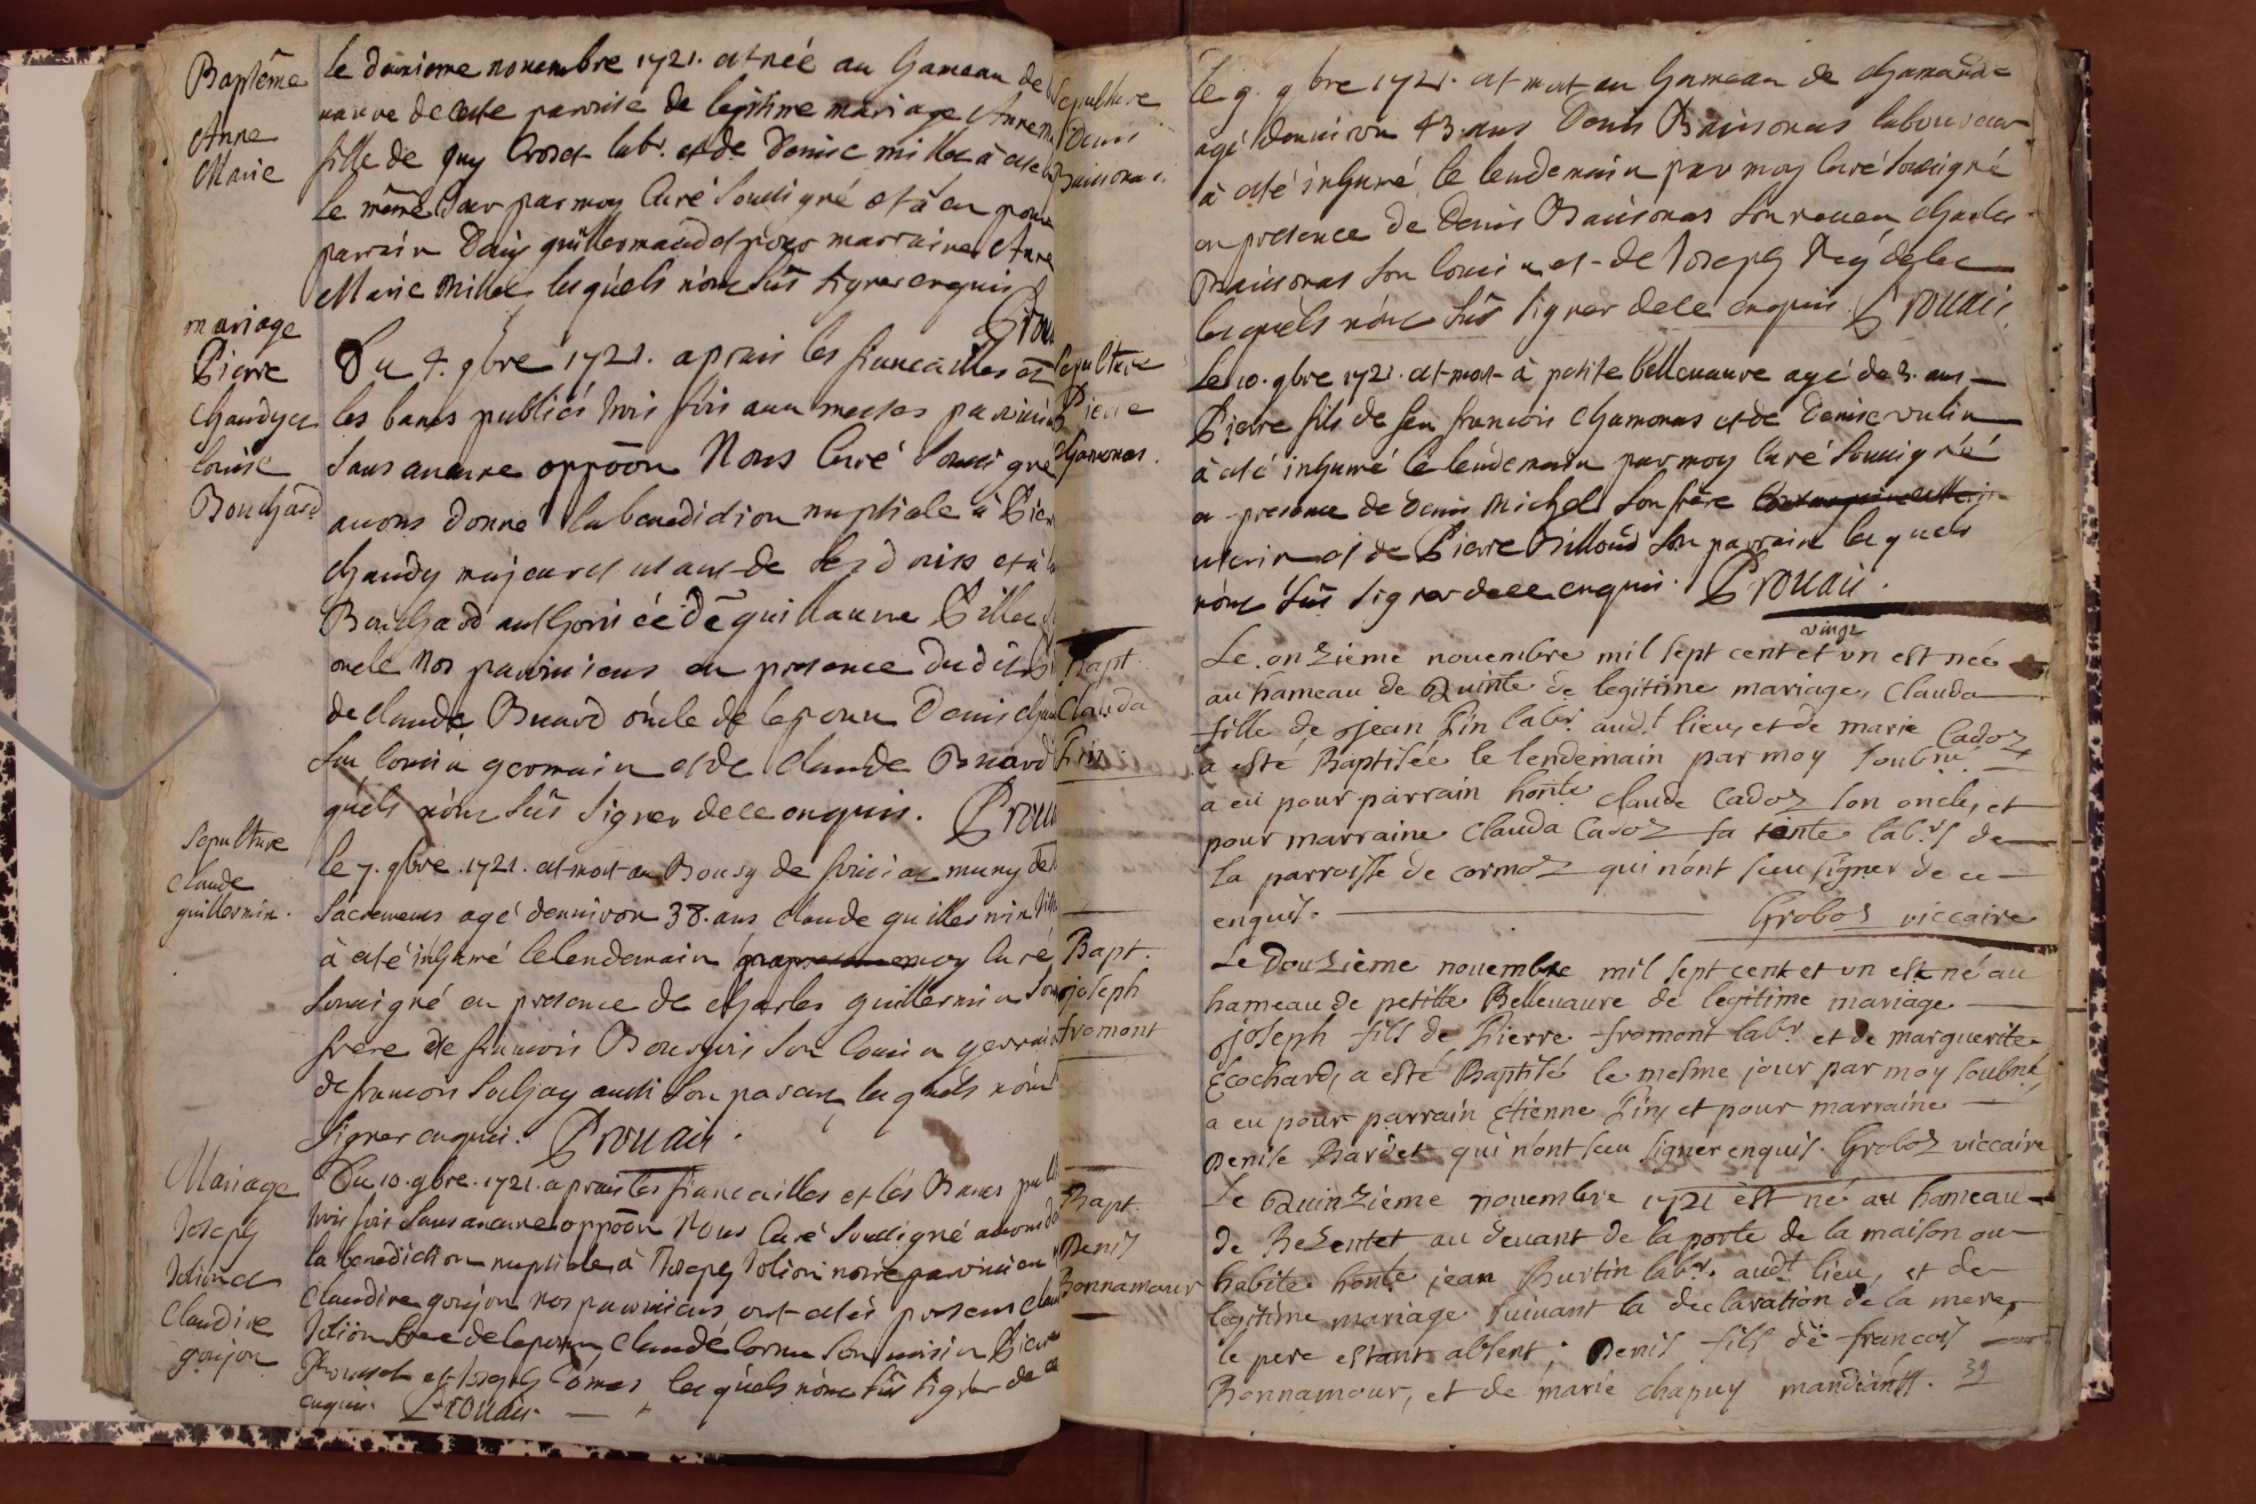 Baptême
Anne
Marie
le deuxieme novembre 1721. est née au hameau de
vavre de cette paroisse de legitime mariage Anne
fille de guy Crozet labr. et de Denise millet à esté
le même jour par moy Curé soussigné et à eu pour
parrain Denis guillermaud et pour marraine Anne
Marie Millet lesquels n'ont sûs signer enquis
Prou
mariage
Pierre
Chaudy et
Louise
Bouchard
Du 4. 9bre 1721. aprais les fiancailles et
les bancs publiés trois fois aux messes
sans aucune oppoõn Nous Curé soussigné
avons donné la benediction nuptiale à Pier
Chaudy majeur et usant de ses droits et à
Bouchard authorisée de guillaume Pillet
oncle nos paroissiens en presence dudit
de claude Buard oncle de lepoux Denis
son cousin germain et de claude Buard
quels n'ont sûs signer de ce enquis. Prou
Sepulture
claude
guillermin.
le 7. 9bre. 1721. est mort au Bourg de muny de
sacremens agé denviron 38. ans claude guillermin
à esté inhumé le lendemain moy curé
soussigné en presence de charles guillermin son
frere de francois Bourgeois son cousin germain
de francois aussi son parent lesquels n'ont
signer enquis. Prouais.
Mariage
Joseph
Jolion et
Claudine
goujon
Du 10. 9bre. 1721. aprais les fiancailles et les Bancs
trois fois sans aucune oppoõn Nous Curé soussigné avons
la benediction nuptiale à Joseph Jolion nôtre paroissien
claudine goujon nos paroissiens ont estés presens
Jolion frere de lepoux claude Cornu son voisin
et Joseph lesquels n'ont sûs signer de ce
enquis. Prouais.
Sepulture
Denis
Buisonas.
Le 9. 9bre 1721. est mort au hameau de
agé denviron 43. ans Denis Buisonas laboureur
à esté inhumé le lendemain par moy Curé soussigné
en presence de Denis Buisonas son neveu charles
Buisonas son cousin et de Joseph
lesquels n'ont sûs signer de ce enquis Prouais.
Sepulture
Pierre
chamonas.
Le 10. 9bre 1721. est mort à petite bellevavre agé de 3. ans
Pierre fils de feu francois chamonas et de Denise vulin
à esté inhumé le lendemain par moy curé soussigné
en presence de Denis Michel son frère
uterin et de Pierre Billoud son parrain lesquels
n'ont sûs signer de ce enquis. Prouais.
Bapt.
Clauda
Pin.
vingt
Le onzieme novembre mil sept cent et un est née
au hameau de Quinte de legitime mariage, Clauda
fille de Jean Pin labr. audt. lieu, et de marie Cadoz
a esté Baptisée le lendemain par moy soubné
a eu pour parrain honte claude Cadoz son oncle, et
pour marraine Clauda Cadoz sa tente labrs de
la parroisse de cormoz qui nont sceu signer de ce
enquis. Groboz viccaire
Bapt.
joseph
fromont
Le Douzieme novembre mil sept cent et un est né au
hameau de petitte Bellevavre de legitime mariage
joseph fils de Pierre fromont labr. et de marguerite
Ecochard, a esté Baptisé le mesme jour par moy soubné
a eu pour parrain Etienne Pin, et pour marraine
Denise Bardet qui nont sceu signer enquis. Groboz viccaire
Bapt.
Denis
Bonnamour
Le Quinzieme novembre 1721 est né au hameau
de Bezentet au devant de la porte de la maison ou
habite honte jean Burtin labr. audt lieu, et de
legitime mariage suivant la declaration de la mere,
le pere estant absent, Denis fils de francois
Bonnamour, et de marie chapuy mandiants. 39